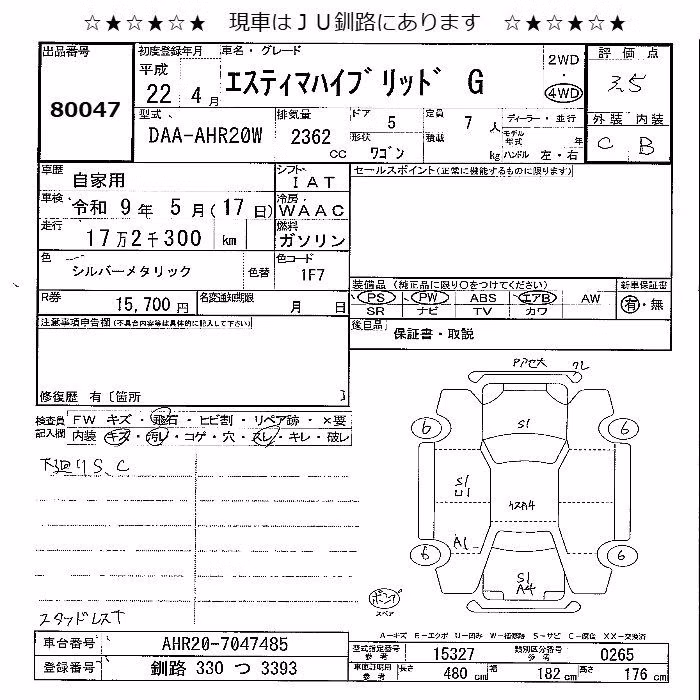 ☆★☆★☆★　現車はＪＵ釧路にあります　☆★☆★☆★
出品番号
80047
初度登録年月
平成
22 4月
車名・グレード
エスティマハイブリッド G
2WD
・
4WD
評価点
3.5
外装 内装
C B
型式
DAA-AHR20W
排気量
2362
CC
ドア
5
形状
ワゴン
定員
7人
積載
kg
ディーラー・並行
モデル年式
年
ハンドル 左・右
車歴
自家用
シフト
IAT
車検
令和 9年 5月(17日)
冷房
WAAC
走行
17万2千300 km
燃料
ガソリン
色
シルバーメタリック
色替
色コード
1F7
R券
15,700円
名変通知期限
月 日
セールスポイント(正常に機能するものに限ります)
装備品 (純正品に限り○をつけてください)
PS PW ABS エアB AW
SR ナビ TV カワ
新車保証書
有・無
後日品
保証書・取説
注意事項申告欄(不具合内容等は具体的に記入して下さい)
修復歴 有〔箇所 〕
検査員記入欄
FW キズ・飛石・ヒビ割・リペア跡・×要
内装 キズ・汚レ・コゲ・穴・スレ・キレ・破レ
下廻りS、C
スタッドレスT
S1
6 6
S1
U1
A1
6 6
S1
A4
スペア
A－キズ E－エクボ U－凹み W－補修跡 S－サビ C－腐蝕 XX－交換済
車台番号
AHR20-7047485
登録番号
釧路 330 つ 3393
型式指定番号
参考
15327
類別区分番号
参考
0265
車両諸元用
参考
長さ
480 cm
幅
182 cm
高さ
176 cm